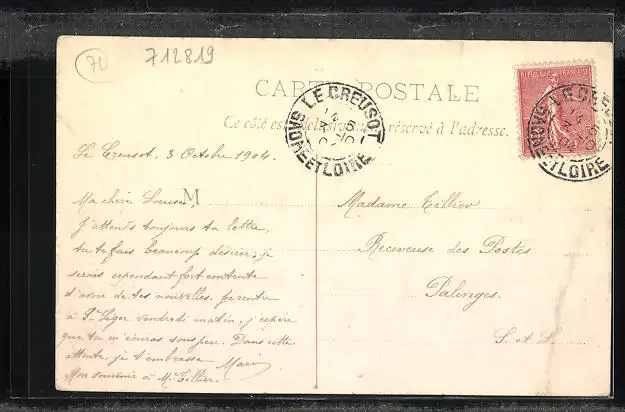 70
712819
CARTE POSTALE
Ce côté est exclusivement réservé à l'adresse.
REPUBLIQUE FRANÇAISE
LE CREUSOT
SAONE ET LOIRE
LE CREUSOT
SAONE ET LOIRE
Le Creusot, 3 Octobre 1904.
Ma chère Louise,
J'attends toujours ta lettre,
tu te fais beaucoup désirer, je
serais cependant fort contente
d'avoir de tes nouvelles. Je rentre
à St Léger vendredi matin, j'espère
que tu m'écriras sous peu. Dans cette
attente, je t'embrasse Marie
Mon souvenir à M. Tillier.
M
Madame Tillier
Receveuse des Postes
Palinges.
S. et L.